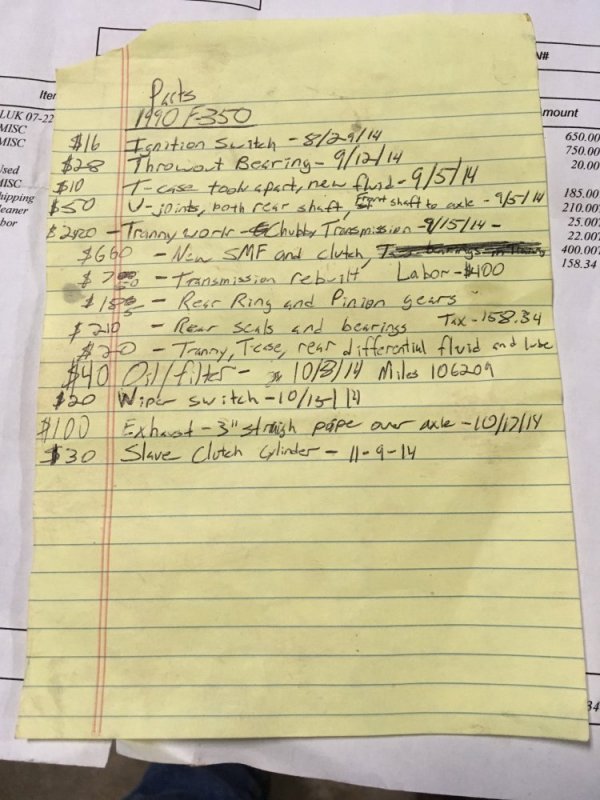 N#
Iter
mount
LUK 07-22
MISC
MISC
Used
MISC
hipping
leaner
bor
650.00
750.00
20.00
185.00
210.00
25.00
22.00
400.00
158.34
34
Parts
1990 F-350
$16 Ignition Switch - 8/29/14
$28 Throwout Bearing - 9/12/14
$10 T-case took apart, new fluid - 9/5/14
$50 U-joints, both rear shaft, Front shaft to axle - 9/5/14
$2420 - Tranny work - Chubby Transmission - 9/15/14 -
$660 - New SMF and clutch,
- Transmission rebuilt Labor - $400
$185 - Rear Ring and Pinion gears
$210 - Rear seals and bearings Tax - 158.34
$20 - Tranny, Tcase, rear differential fluid and lube
$40 Oil/filter - 10/8/14 Miles 106209
$20 Wiper switch - 10/15/14
$100 Exhaust - 3" straigh pipe over axle - 10/17/14
$30 Slave Clutch Cylinder - 11-9-14